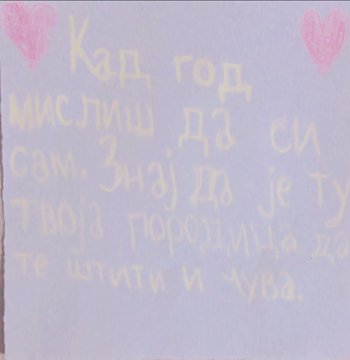 Кад год
мислиш да си
сам. Знај да је ту
твоја породица да
те штити и чува.